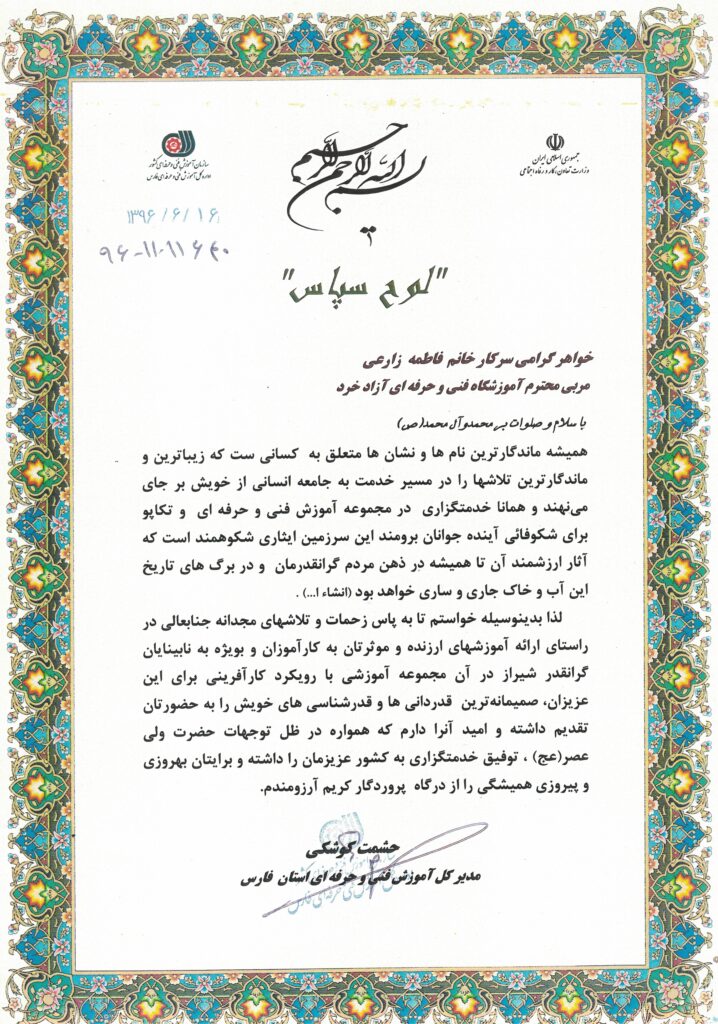 بسم الله الرحمن الرحیم
جمهوری اسلامی ایران
وزارت تعاون، کار و رفاه اجتماعی
سازمان آموزش فنی و حرفه ای کشور
اداره کل آموزش فنی و حرفه ای فارس
۱۳۹۶/۶/۱۶
"لوح سپاس"
خواهر گرامی سرکار خانم فاطمه زارعی
مربی محترم آموزشگاه فنی و حرفه ای آزاد خرد
با سلام و صلوات بر محمد و آل محمد(ص)
همیشه ماندگارترین نام ها و نشان ها متعلق به کسانی ست که زیباترین و
ماندگارترین تلاشها را در مسیر خدمت به جامعه انسانی از خویش بر جای
می‌نهند و همانا خدمتگزاری در مجموعه آموزش فنی و حرفه ای و تکاپو
برای شکوفائی آینده جوانان برومند این سرزمین ایثاری شکوهمند است که
آثار ارزشمند آن تا همیشه در ذهن مردم گرانقدرمان و در برگ های تاریخ
این آب و خاک جاری و ساری خواهد بود (انشاء ا...) .
لذا بدینوسیله خواستم تا به پاس زحمات و تلاشهای مجدانه جنابعالی در
راستای ارائه آموزشهای ارزنده و موثرتان به کارآموزان و بویژه به نابینایان
گرانقدر شیراز در آن مجموعه آموزشی با رویکرد کارآفرینی برای این
عزیزان، صمیمانه‌ترین قدردانی ها و قدرشناسی های خویش را به حضورتان
تقدیم داشته و امید آنرا دارم که همواره در ظل توجهات حضرت ولی
عصر(عج) ، توفیق خدمتگزاری به کشور عزیزمان را داشته و برایتان بهروزی
و پیروزی همیشگی را از درگاه پروردگار کریم آرزومندم.
حشمت کوشکی
مدیر کل آموزش فنی و حرفه ای استان فارس